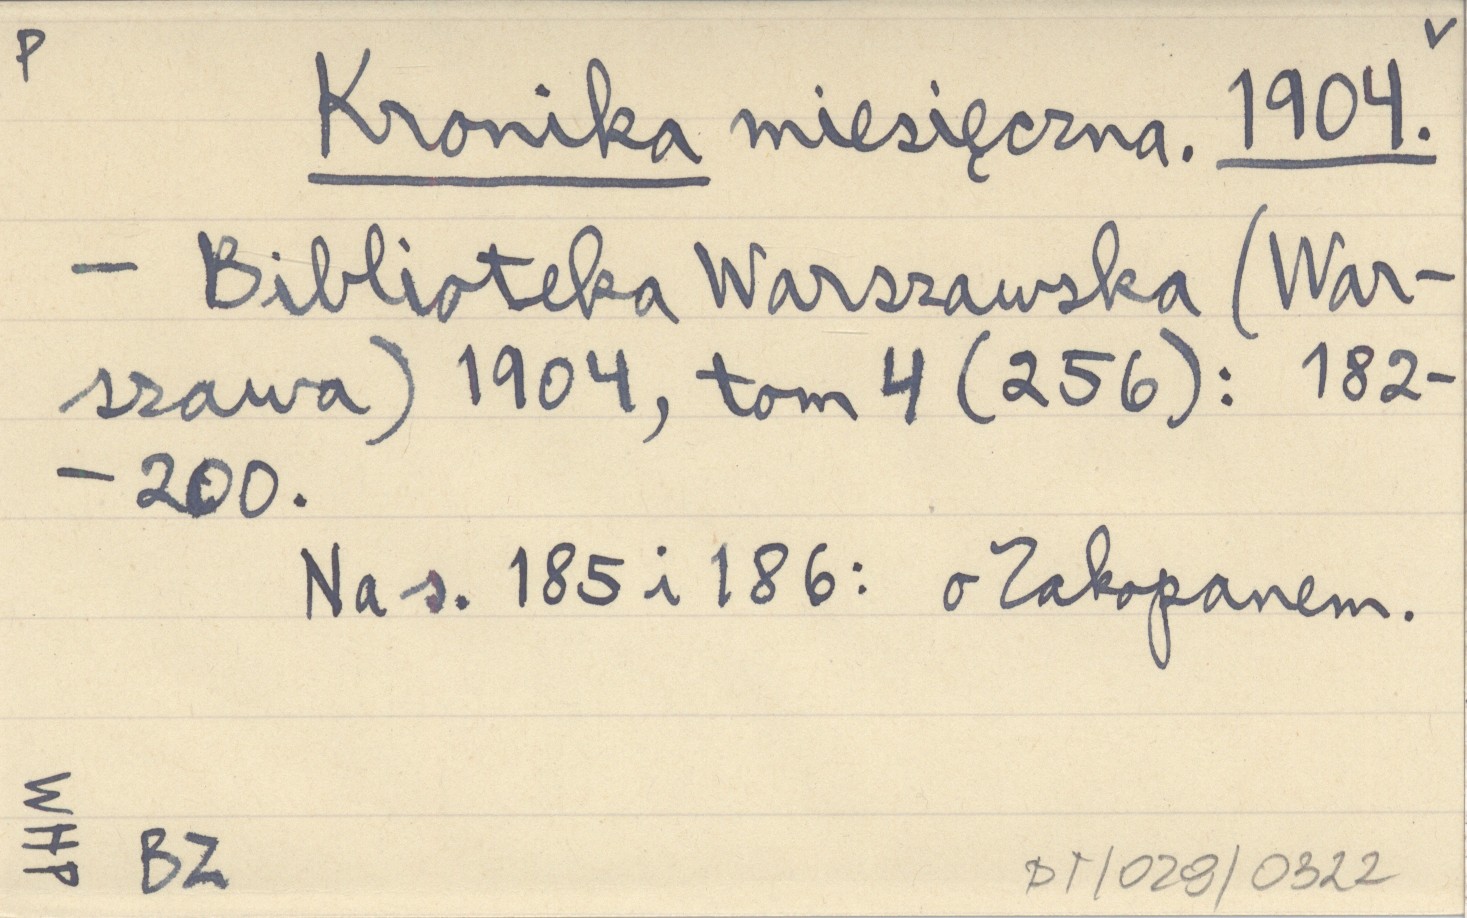 P
v
Kronika miesięczna. 1904.
— Biblioteka Warszawska (War-
szawa) 1904, tom 4 (256): 182-
- 200.
Na s. 185 i 186: o Zakopanem.
WHP
BZ
DT/029/0322